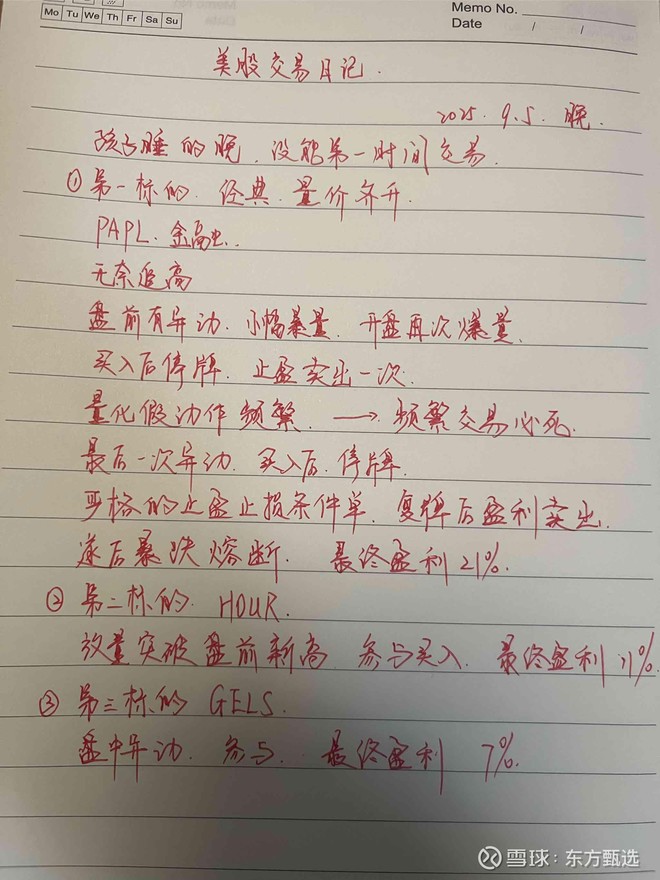 Memo No.
Mo Tu We Th Fr Sa Su
Date / /
美股交易日记.
2025. 9.5. 晚.
孩子睡的晚, 没能第一时间交易.
① 第一标的. 经典. 量价齐升.
PAPL. 金融虫.
无奈追高
盘前有异动. 小幅暴量. 开盘再次爆量.
买入后停牌. 止盈卖出一次.
量化假动作频繁. → 频繁交易必死.
最后一次异动. 买入后. 停牌.
严格的止盈止损条件单. 复牌后盈利卖出.
遂后暴跌熔断. 最终盈利21%.
② 第二标的. HOUR.
放量突破盘前新高. 参与买入. 最终盈利 11%.
③ 第三标的 GELS.
盘中异动. 参与. 最终盈利 7%.
雪球:东方甄选